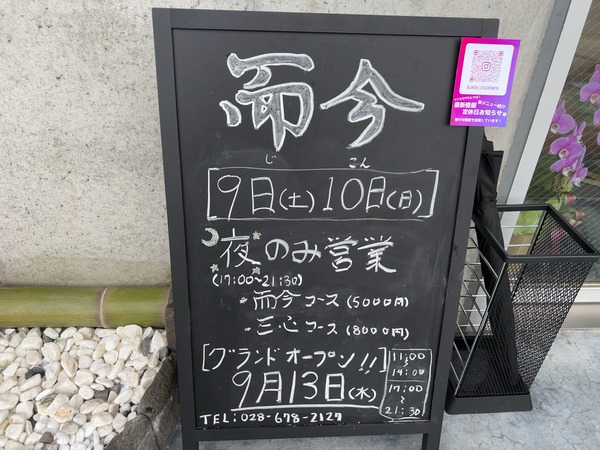 而今
じ こん
9日(土)10日(月)
夜のみ営業
(17:00~21:30)
・而今コース(5000円)
・三心コース(8000円)
[グランドオープン!!]
9月13日(水)
11:00
~
14:00
17:00
~
21:30
TEL:028-678-2127
最新情報
新メニュー紹介
定休日お知らせ等